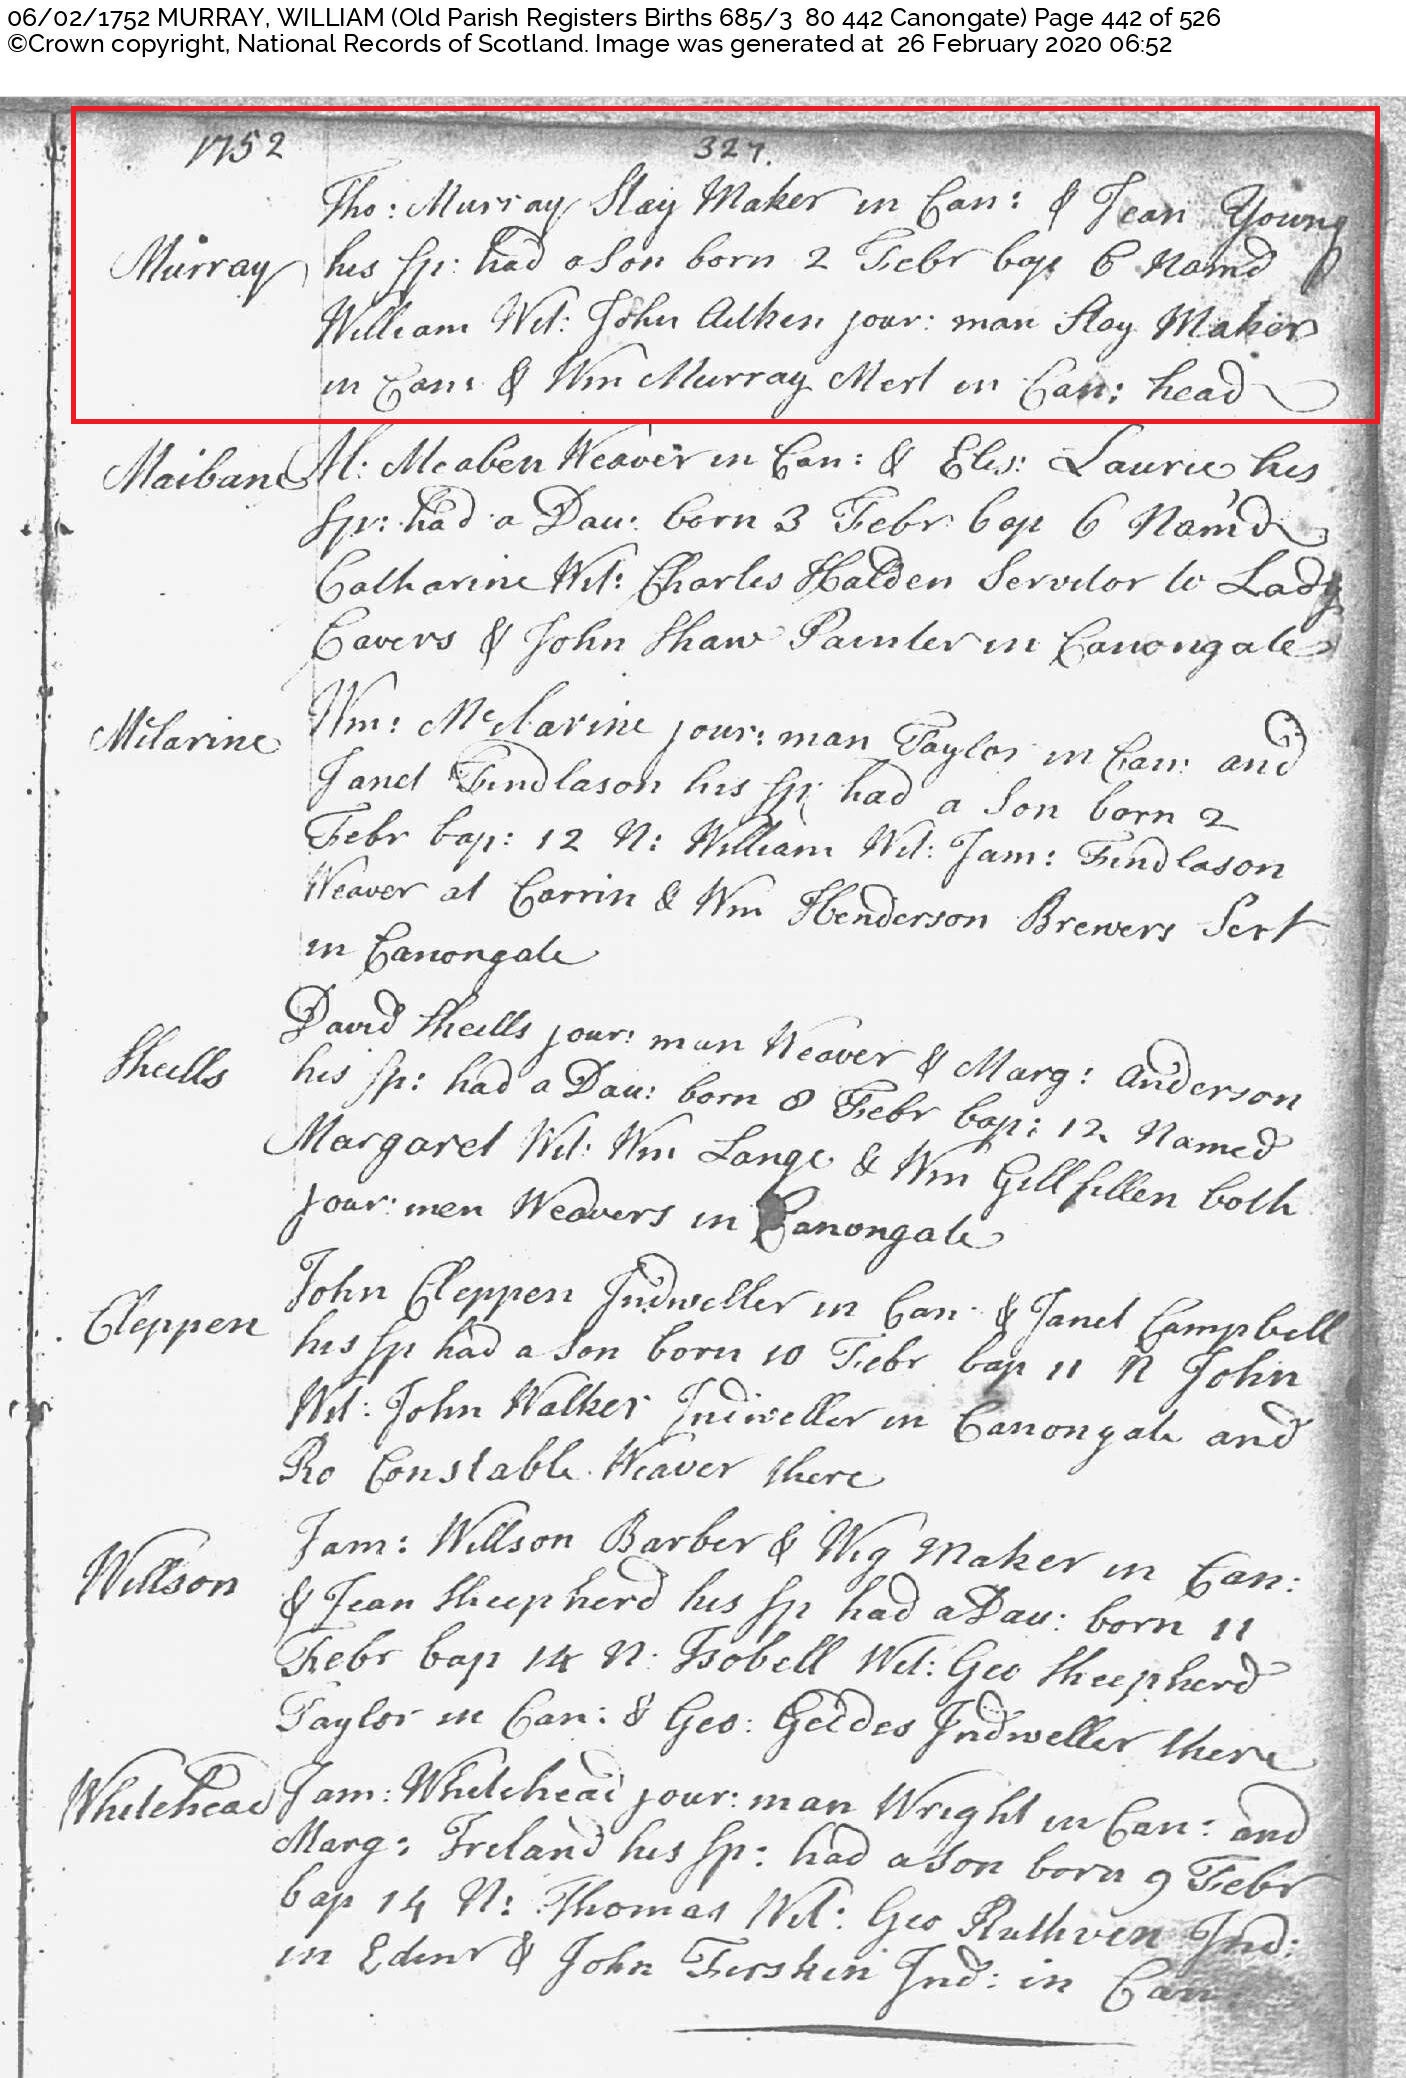 06/02/1752 MURRAY, WILLIAM (Old Parish Registers Births 685/3 80 442 Canongate) Page 442 of 526
©Crown copyright, National Records of Scotland. Image was generated at 26 February 2020 06:52
1752 327.
Tho: Murray Stay Maker in Can: & Jean Young
Murray his sp: had a Son born 2 Febr bap 6 Namd
William Wit: John Aitken jour: man Stay Maker
in Can: & Wm Murray Mert in Can: head
Maiban M: Mcaben Weaver in Can: & Elis: Laurie his
sp: had a Dau: born 3 Febr bap 6 Nam'd
Catharine Wit: Charles Halden Servitor to Lady
Cavers & John Shaw Painter in Canongate
Mclarine Wm: Mclarine jour: man Taylor in Can: and
Janet Findlason his sp: had a Son born 2
Febr bap: 12 N: William Wit: Jam: Findlason
Weaver at Corrin & Wm Henderson Brewers Sert
in Canongate
Sheills David Sheills jour: man Weaver & Marg: Anderson
his sp: had a Dau: born 8 Febr bap: 12 Named
Margaret Wit: Wm Lange & Wm Gillfillen both
jour: men Weavers in Canongate
Cleppen John Cleppen Indweller in Can & Janet Campbell
his sp had a Son born 10 Febr bap 11 N John
Wit: John Walker Indweller in Canongate and
Ro Constable Weaver there
Willson Jam: Willson Barber & Wig Maker in Can:
& Jean Sheepherd his sp had a Dau: born 11
Febr bap 14 N: Isobell Wit: Geo Sheepherd
Taylor in Can: & Geo: Geddes Indweller there
Whitehead Jam: Whitehead jour: man Wright in Can: and
Marg: Ireland his sp: had a Son born 9 Febr
bap 14 N: Thomas Wit: Geo Ruthven Ind:
in Edinr & John Ferskin Ind: in Can